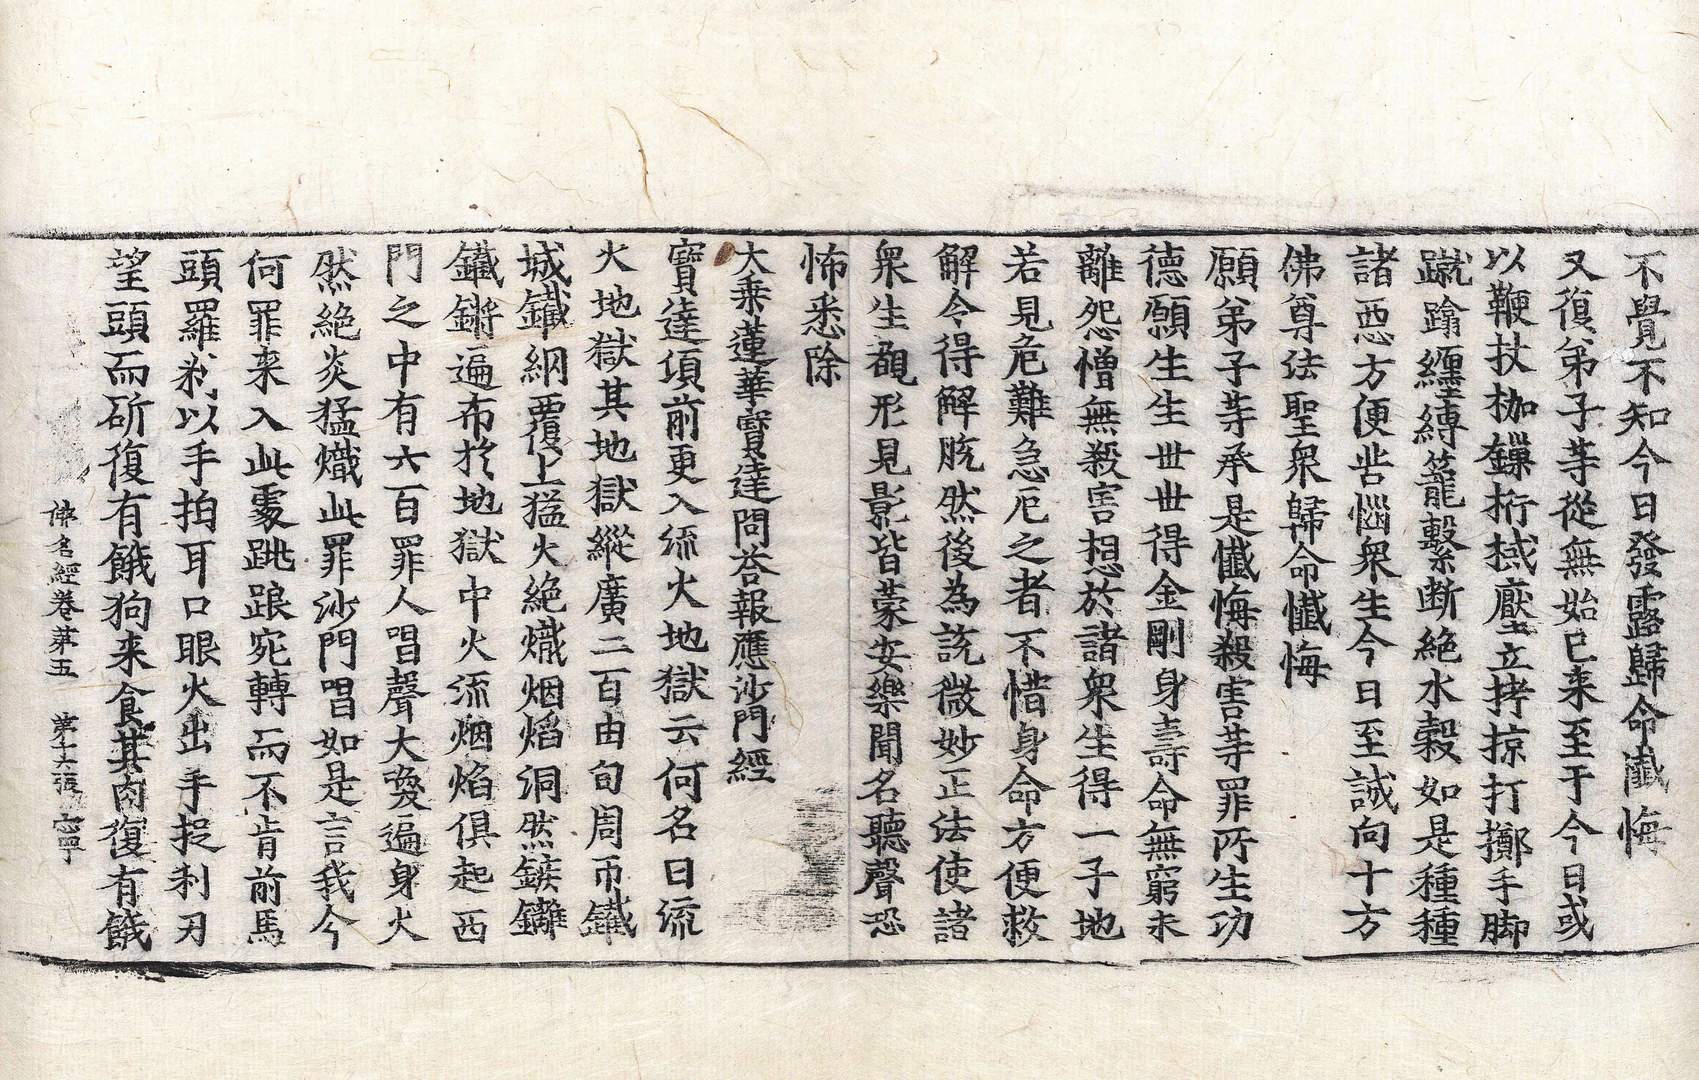 不覺不知今日發露歸命懺悔
又復弟子等從無始已来至于今日或
以鞭杖枷鏁桁械壓立拷掠打擲手脚
蹴踏纏縛籠繫斷絶水糓如是種種
諸惡方便苦惱衆生今日至誠向十方
佛尊法聖衆歸命懺悔
願弟子等承是懺悔殺害等罪所生功
德願生生世世得金剛身壽命無窮未
離怨憎無殺害想於諸衆生得一子地
若見危難急厄之者不惜身命方便救
解令得解脫然後為說微妙正法使諸
衆生覩形見影皆蒙安樂聞名聽聲恐
怖悉除
大乗蓮華寶達問荅報應沙門經
寶達頃前更入流火地獄云何名曰流
火地獄其地獄縱廣二百由旬周帀鐵
城鐵網覆上猛火絶熾烟熖洞然鏃鑻
鐵鏘遍布於地獄中火流烟焰俱起西
門之中有六百罪人唱聲大㖟遍身火
然絶炎猛熾此罪沙門唱如是言我今
何罪来入此䖏跳踉宛轉而不肯前馬
頭羅刹以手拍耳口眼火出手捉利刃
望頭而斫復有餓狗来食其肉復有餓
佛名經卷苐五 第十六張 宻寧